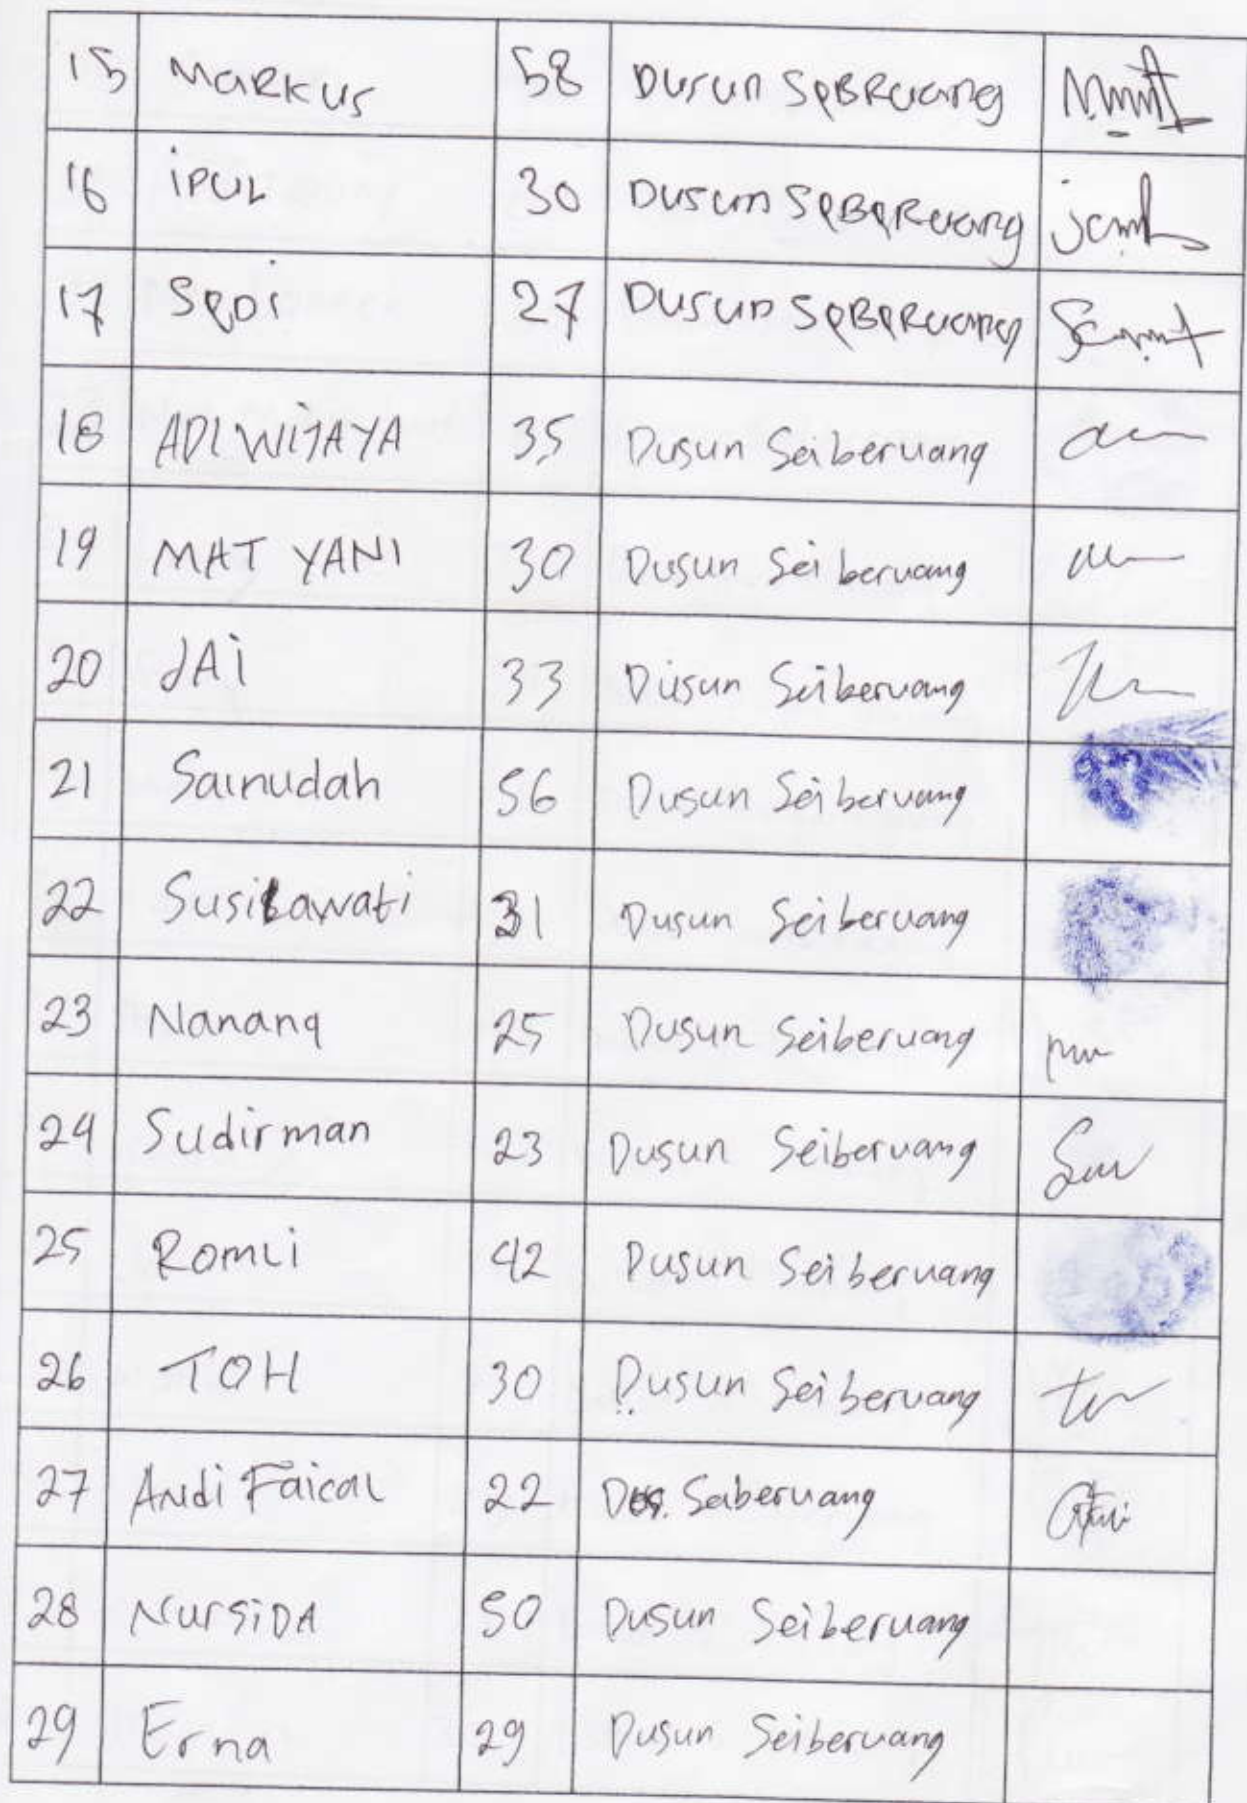 15 MARKUS 58 DUSUN SeBRuang
16 iPUL 30 DUSUN SeBeRuang
17 SeDi 27 DUSUN SeBeRuang
18 ADI WIJAYA 35 Dusun Seiberuang
19 MAT YANI 30 Dusun Sei beruang
20 JAi 33 Dusun Seiberuang
21 Sainudah 56 Dusun Sei beruang
22 Susilawati 31 Dusun Seiberuang
23 Nanang 25 Dusun Seiberuang
24 Sudirman 23 Dusun Seiberuang
25 Romli 42 Dusun Sei beruang
26 TOH 30 Dusun Sei beruang
27 Andi Faical 22 Dus. Seberuang
28 NursiDA 50 Dusun Seiberuang
29 Erna 29 Dusun Seiberuang